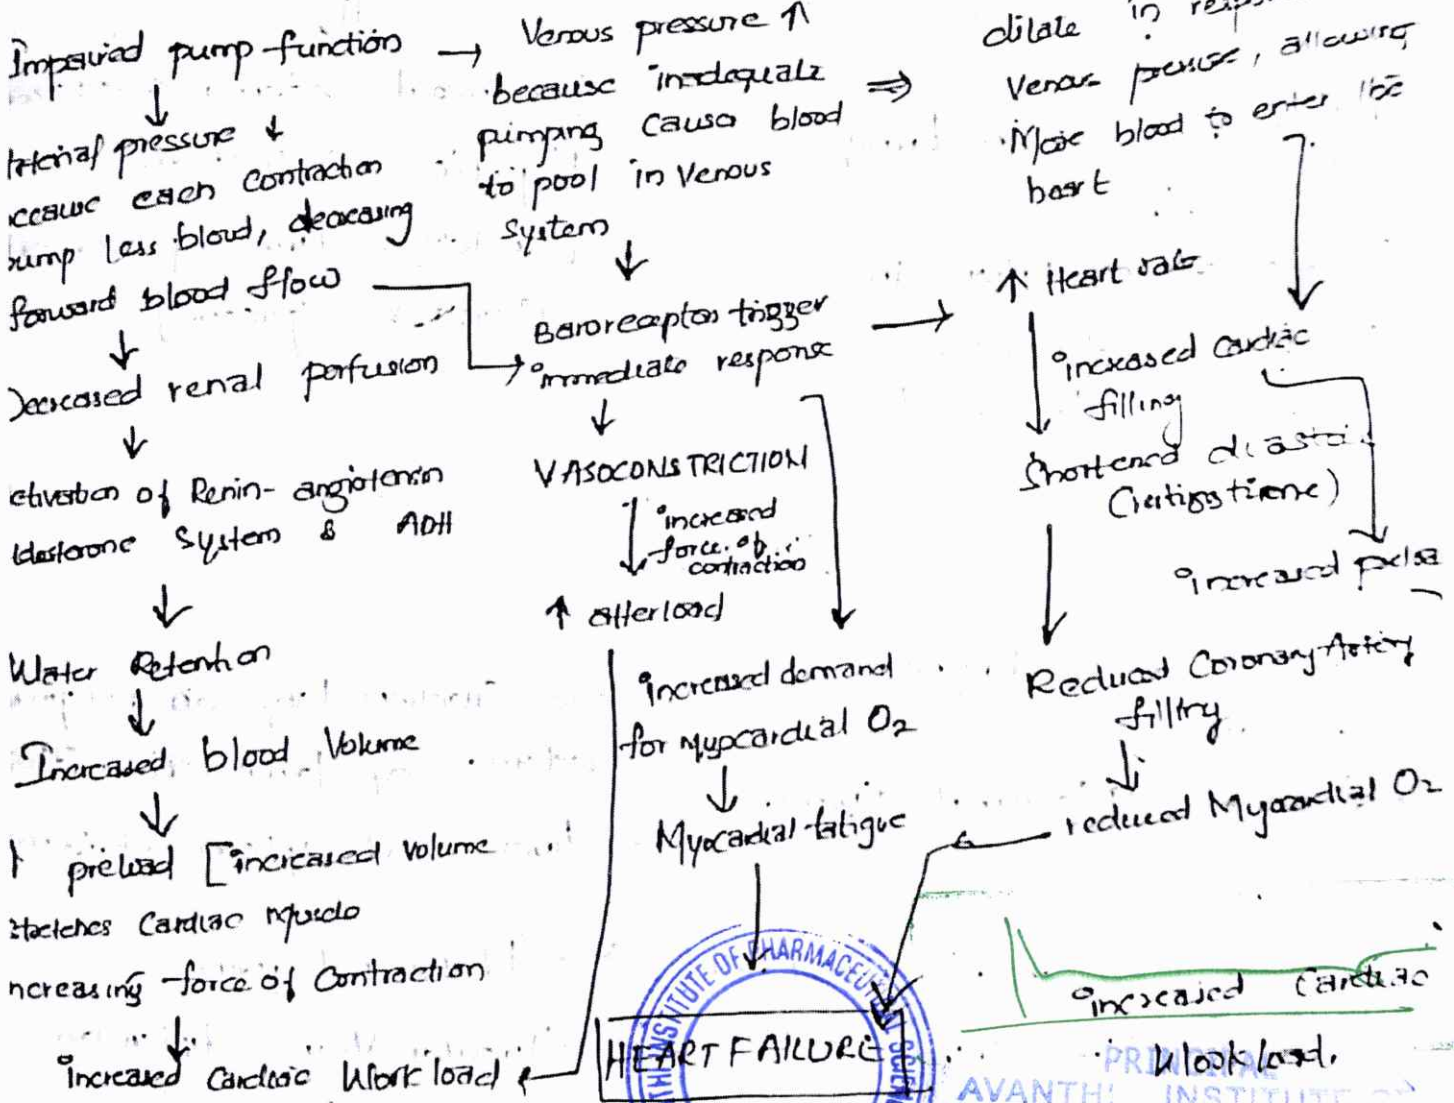 Impaired pump function → Venous pressure ↑
because inadequate
pumping cause blood
to pool in Venous
System
dilate in
Venous pressure, allowing
More blood to enter the
heart
pressure ↓
each Contraction
less blood, decreasing
forward blood flow
Decreased renal perfusion
of Renin- angiotensin
System & ADH
Water Retention
Increased blood Volume
preload [increased volume
Cardiac Muscle
increasing force of Contraction
increased Cardiac Work load
Baroreceptors trigger
immediate response
VASOCONSTRICTION
increased
force of
contraction
↑ afterload
increased demand
for myocardial O2
Myocardial fatigue
HEART FAILURE
↑ Heart rate
increased cardiac
filling
Shortened diastole
increased pulse
Reduced Coronary Artery
filling
reduced Myocardial O2
increased Cardiac
Work load.
INSTITUTE OF PHARMACEUTICAL
PRINCIPAL
AVANTHI INSTITUTE OF